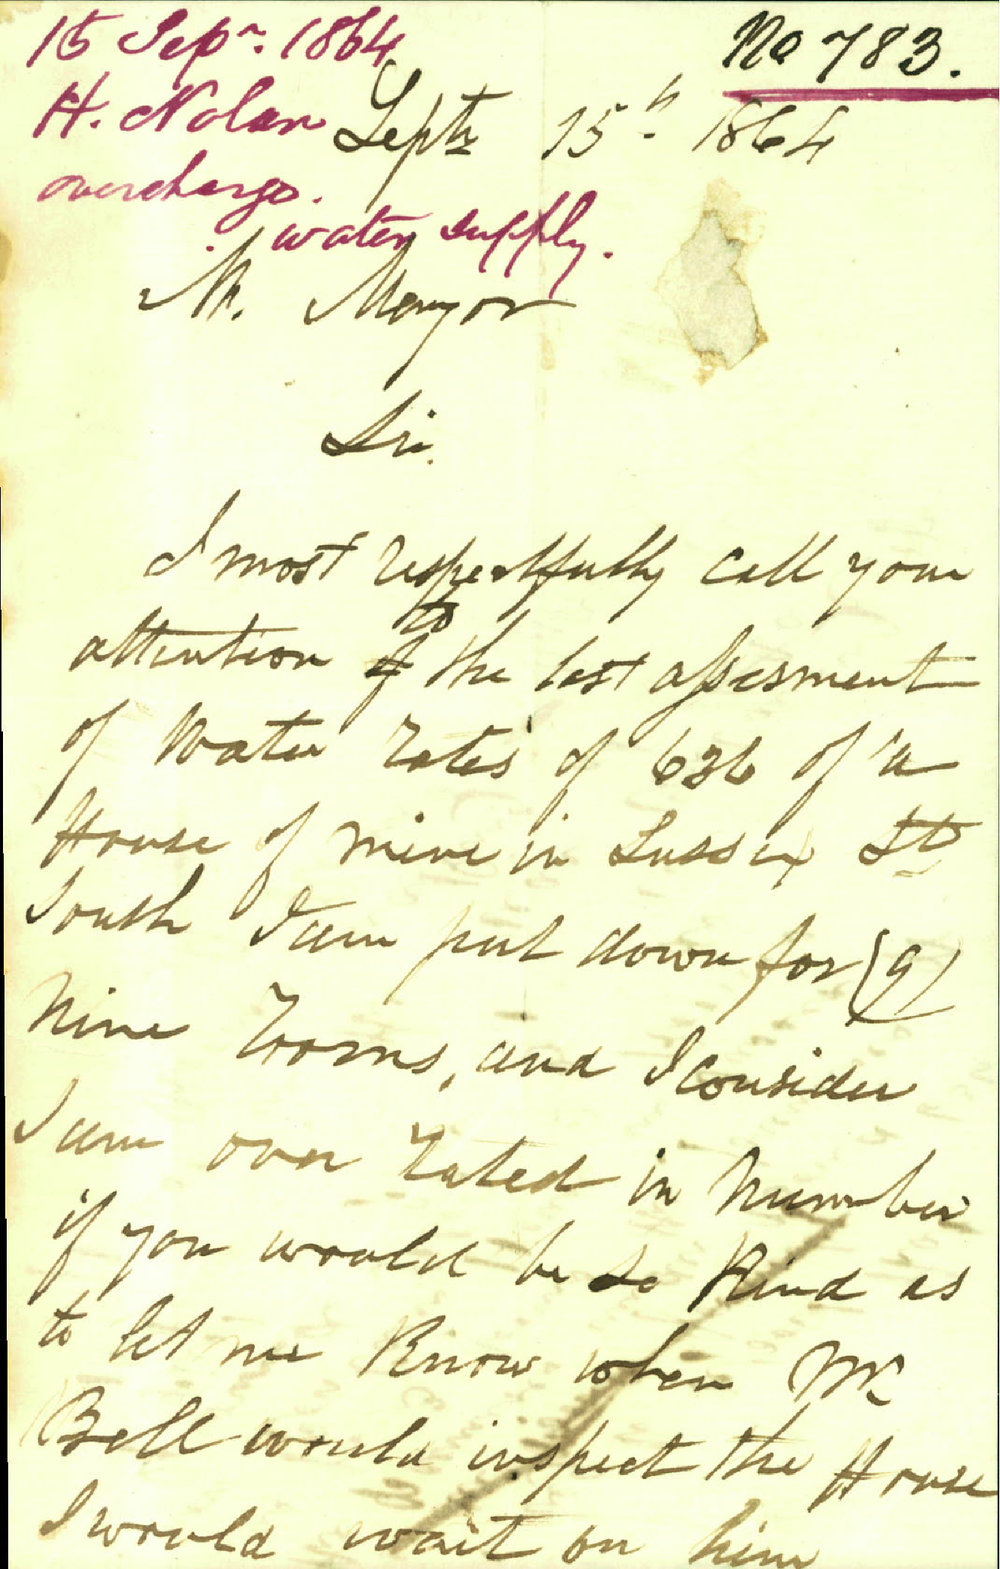 15 Sepr. 1864
No 783.
H. Nolan
Septr 15th 1864
overcharge.
water supply.
Mr. Mayor
Sir.
I most respectfully call your
attention to the last assesment
of Water rates of 636 of a
House of mine in Sussex St
South I am put down for (9)
Nine rooms, and I consider
I am over rated in number
if you would be so Kind as
to let me Know when Mr
Bell would inspect the House
I would wait on him